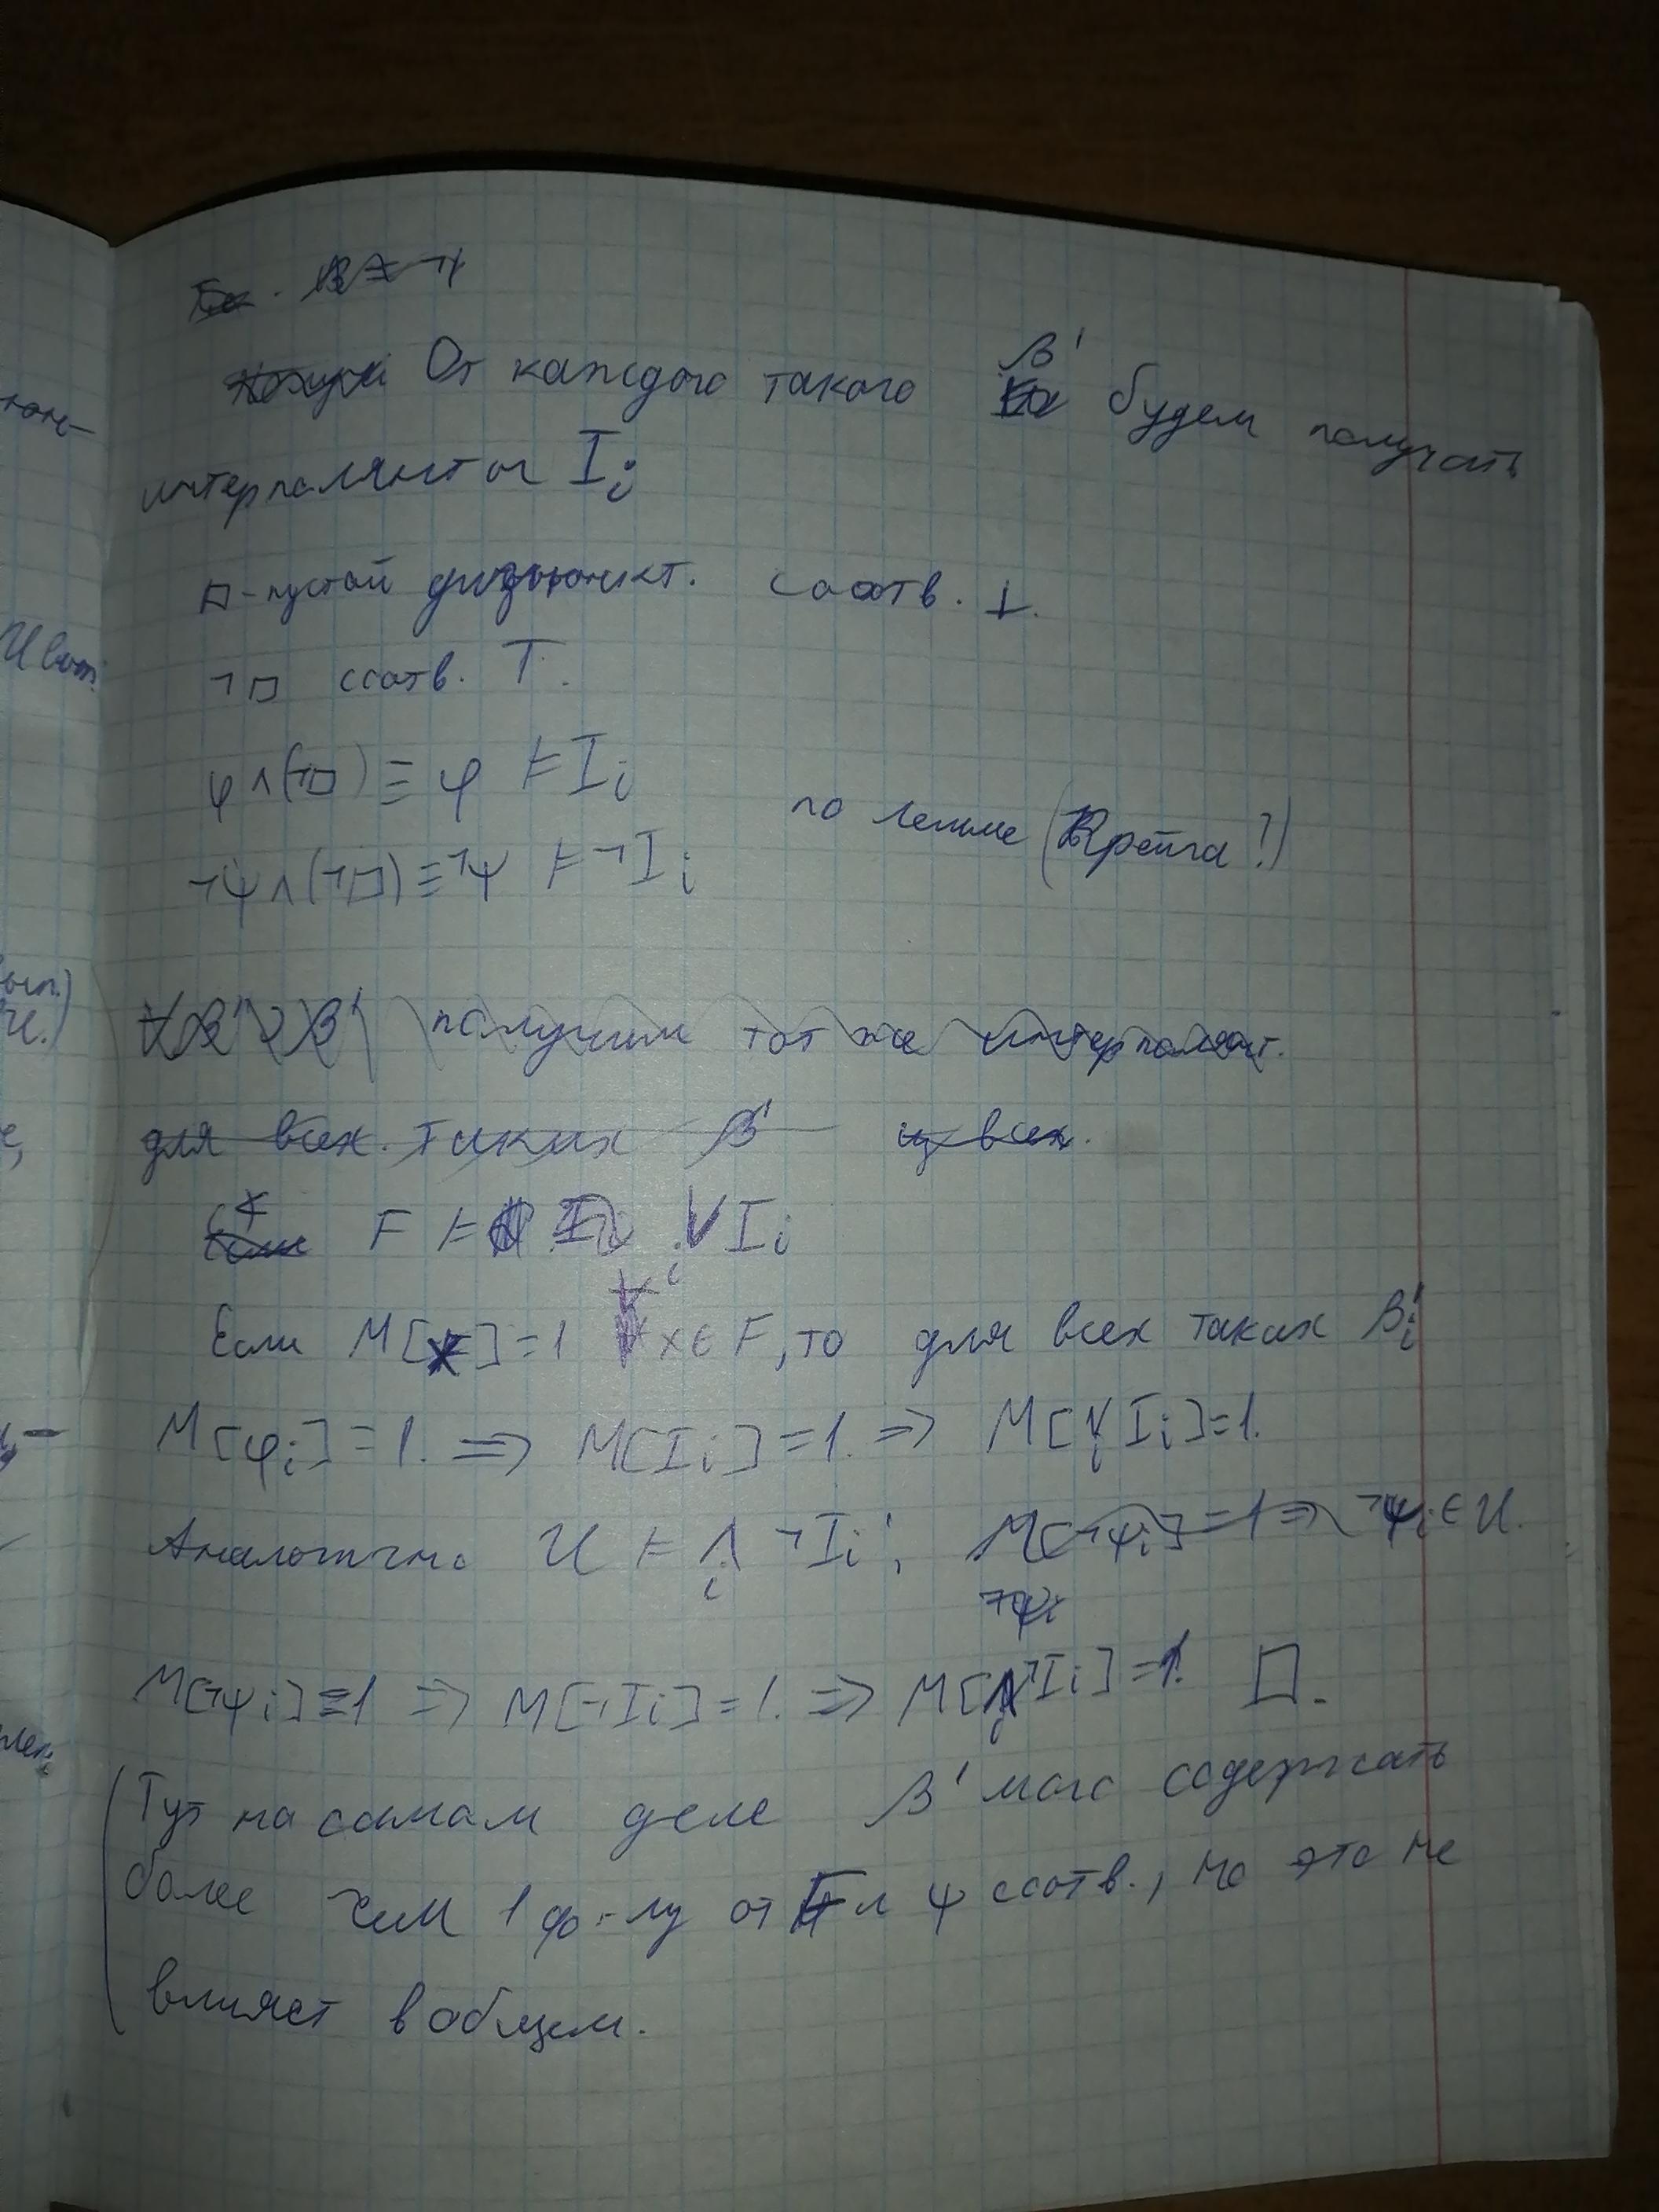 От каждого такого β' будем получать
интерполянты I_i
□ - пустой дизъюнкт. соотв. ⊥.
¬□ соотв. T.
φ∧(¬□) ≡ φ ⊨ I_i
по лемме (Крейга?)
¬ψ∧(¬□) ≡ ¬ψ ⊨ ¬I_i
получим тот же интерполянт.
для всех таких β' из всех.
F ⊨ ∨_i I_i
Если M[x]=1 ∀x∈F, то для всех таких β'_i
M[φ_i]=1. ⇒ M[I_i]=1. ⇒ M[∨_i I_i]=1.
Аналогично U ⊨ ∧_i ¬I_i; M[¬ψ_i]=1 ⇒ ¬ψ_i ∈ U.
¬ψ_i
M[¬ψ_i]=1 ⇒ M[¬I_i]=1. ⇒ M[∧_i ¬I_i]=1. □.
(Тут на самом деле β' мого содержать
более чем 1 ф-лу от F и ψ соотв., но это не
влияет в общем.
U вып.